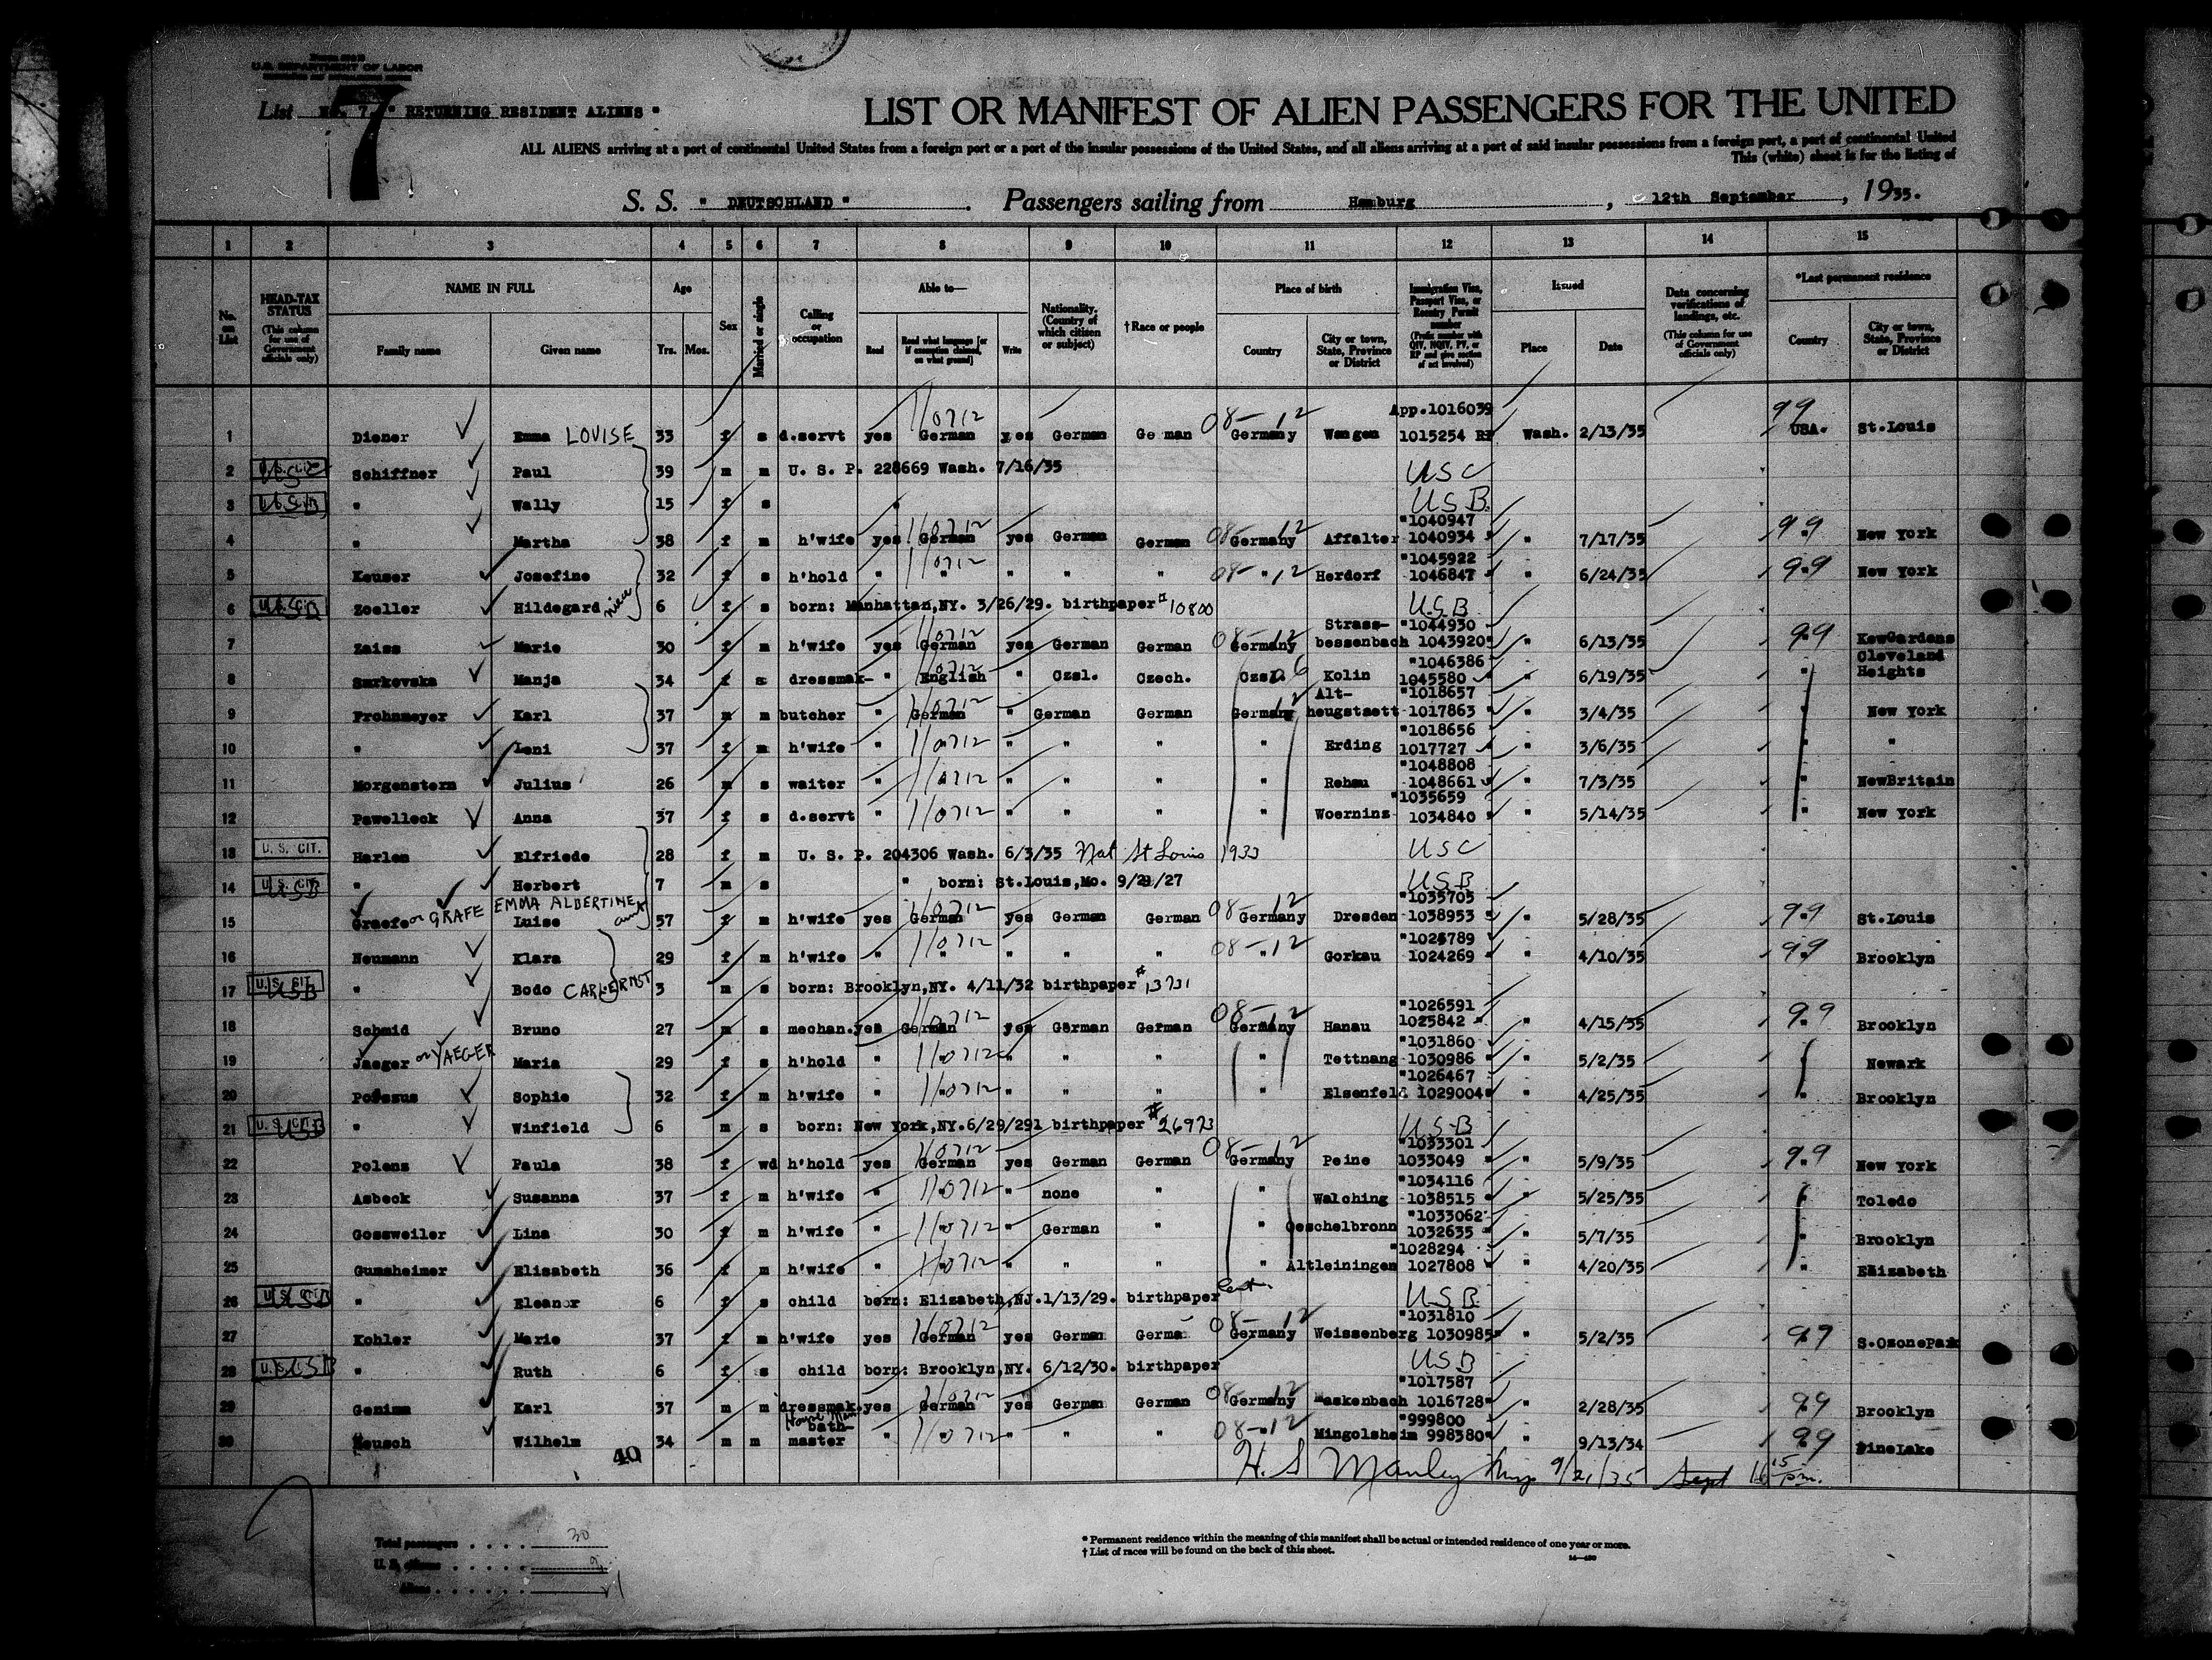 U.S. DEPARTMENT OF LABOR
List No. 7. " RETURNING RESIDENT ALIENS "
7
LIST OR MANIFEST OF ALIEN PASSENGERS FOR THE UNITED
ALL ALIENS arriving at a port of continental United States from a foreign port or a port of the insular possessions of the United States, and all aliens arriving at a port of said insular possessions from a foreign port, a part of continental United
This (white) sheet is for the listing of
S. S. " DEUTSCHLAND " . Passengers sailing from Hamburg , 12th September , 1935.
1 2 3 4 5 6 7 8 9 10 11 12 13 14 15
No. on List
HEAD-TAX STATUS (This column for use of Government officials only)
NAME IN FULL
Family name Given name
Age
Yrs. Mos.
Sex
Married or single
Calling or occupation
Able to—
Read Read what language [or if exemption claimed, on what ground] Write
Nationality. (Country of which citizen or subject)
†Race or people
Place of birth
Country City or town, State, Province or District
Immigration Visa, Passport Visa, or Reentry Permit number (Prefix number with QIV, NQIV, PV, or RP and give section of act involved)
Issued
Place Date
Data concerning verifications of landings, etc. (This column for use of Government officials only)
*Last permanent residence
Country City or town, State, Province or District
App.1016039 99
1 Diener Emma LOUISE 33 f s d.servt yes German yes German Ge man 08-12 Germany Wangen 1015254 RP Wash. 2/13/35 USA. St.Louis
2 U.S. CIT. USC Schiffner Paul 39 m m U. S. P. 228669 Wash. 7/16/35 USC
3 USB " Wally 15 f s " USB
"1040947
4 " Martha 38 f m h'wife yes German yes German German 08-12 Germany Affalter 1040934 " 7/17/35 99 New York
"1045922
5 Keuser Josefine 32 f s h'hold " " " " " 08-12 " Herdorf 1046847 " 6/24/35 99 New York
6 USB Zoeller Hildegard niece 6 f s born: Manhattan,NY. 3/26/29. birthpaper # 10800 USB
Strass- "1044930
7 Zaiss Marie 30 f m h'wife yes German yes German German 08-12 Germany bessenbach 1043920 " 6/13/35 99 KewGardens
"1046386 Cleveland
8 Smrkovska Manja 34 f s dressmak- " English " Czsl. Czech. Czsl. Kolin 1045580 " 6/19/35 " Heights
Alt- "1018657
9 Frohnmeyer Karl 37 m m butcher " German " German German Germany heugstaett 1017863 " 3/4/35 " New York
"1018656
10 " Leni 37 f m h'wife " " " " " " Erding 1017727 " 3/6/35 " "
"1048808
11 Morgenstern Julius 26 m s waiter " " " " " " Rehau 1048661 " 7/3/35 " NewBritain
"1035659
12 Pawelleck Anna 37 f s d.servt " " " " " " Woernins 1034840 " 5/14/35 " New York
13 U. S. CIT. Harlen Elfriede 28 f m U. S. P. 204306 Wash. 6/3/35 Nat St Louis 1933 USC
14 U. S. CIT. USB " Herbert 7 m s " born: St.Louis,Mo. 9/29/27 USB
EMMA ALBERTINE "1035705
15 Graefe or GRAFE Luise aunt 57 f m h'wife yes German yes German German 08-12 Germany Dresden 1038953 " 5/28/35 99 St.Louis
"1025789
16 Neumann Klara 29 f m h'wife " " " " " 08-12 " Gorkau 1024269 " 4/10/35 99 Brooklyn
17 U. S. CIT. USB " Bodo CARL ERNST 3 m s born: Brooklyn,NY. 4/11/32 birthpaper # 13731
"1026591
18 Schmid Bruno 27 m s mechan. yes German yes German German 08-12 Germany Hanau 1025842 " 4/15/35 99 Brooklyn
"1031860
19 Jaeger or YAEGER Maria 29 f s h'hold " " " " " " Tettnang 1030986 " 5/2/35 " Newark
"1026467
20 Sophie 32 f m h'wife " " " " " " Elsenfeld 1029004 " 4/25/35 " Brooklyn
21 U. S. CIT. USB " Winfield 6 m s born: New York,NY.6/29/291 birthpaper # 26973 USB
"1033301
22 Polens Paula 38 f wd h'hold yes German yes German German 08-12 Germany Peine 1033049 " 5/9/35 99 New York
"1034116
23 Asbeck Susanna 37 f m h'wife " " " none " " Walching 1038515 " 5/25/35 " Toledo
"1033062
24 Gossweiler Lina 30 f m h'wife " " " German " " Oeschelbronn 1032635 " 5/7/35 " Brooklyn
"1028294
25 Gumsheimer Elisabeth 36 f m h'wife " " " " " " Altleiningen 1027808 " 4/20/35 " Elizabeth
26 U. S. CIT. USB " Eleanor 6 f s child born: Elizabeth,NJ.1/13/29. birthpaper USB
"1031810
27 Kohler Marie 37 f m h'wife yes German yes German Germa 08-12 Germany Weissenberg 1030985 " 5/2/35 99 S.OzonePark
28 U. S. USB " Ruth 6 f s child born: Brooklyn,NY. 6/12/30. birthpaper USB
"1017587
29 Genima Karl 37 m m dressmak. yes German yes German German 08-12 Germany Maskenbach 1016728 " 2/28/35 99 Brooklyn
House Man bath- "999800
30 Reusch Wilhelm 34 m m master " " " " " 08-12 " Mingolsheim 998380 " 9/13/34 99 PineLake
40
H. S Manley Insp 9/21/35 Sept
Total passengers . . . . 30
U. S. citizens . . . . . 9
Aliens . . . . . . 21
* Permanent residence within the meaning of this manifest shall be actual or intended residence of one year or more.
† List of races will be found on the back of this sheet.